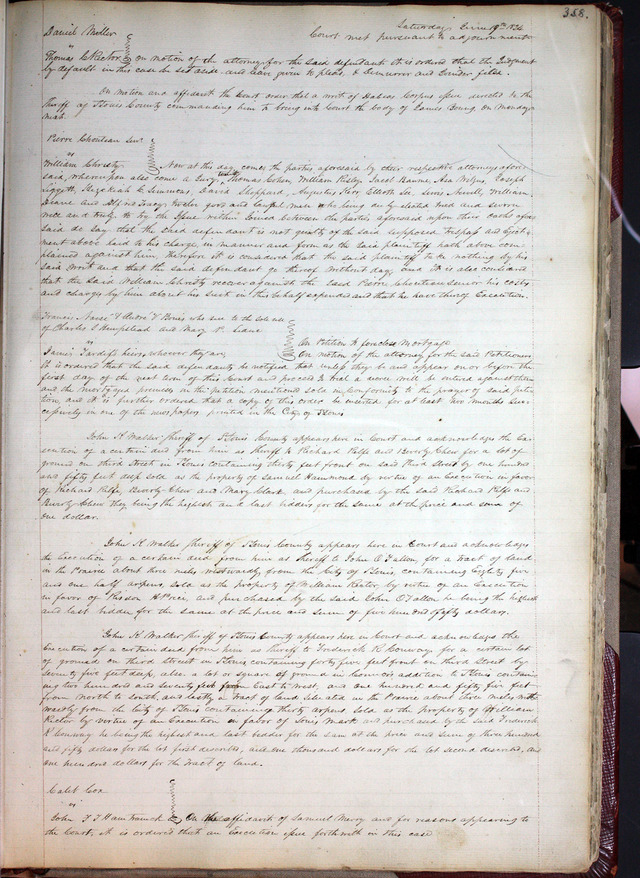 358.
Saturday June 19th 1824
Daniel Miller Court met pursuant to adjournment
vs
Thomas C Rector On motion of the attorney for the said defendant It is ordered that the Judgment
by default in this case be set aside and leave given to plead, & Demurrer and Joinder filed.
On motion and affidavit the Court order that a writ of Habeas Corpus issue directed to the
Sheriff of St Louis County commanding him to bring into Court the body of James Boing on Monday
next.
Pierre Chouteau Senr
vs
William Christy Now at this day comes the parties aforesaid by their respective attorneys afore
said, whereupon also come a Jury to wit, Thomas Cohen, William Risley, Jacob Banner, Asa Wilgus, Joseph
Liggett, Hezekiah C Simmons, David Sheppard, Augustus Kerr Elliott Lee, Lewis Newell, William
Deane and Alpins Tracy twelve good and lawful men who being duly elected tried and sworn
well and truly to try the Issue within Joined between the parties aforesaid upon their oaths afore
said do say that the said defendant is not guilty of the said supposed trespass and Eject-
ment above laid to his charge, in manner and form as the said plaintiff hath above com-
plained against him, therefore it is considered that the said plaintiff take nothing by his
said Writ and that the said defendant go thereof without day, and It is also considered
that the said William Christy recover against the said Pierre Chouteau senior his costs
and charges by him about his suit in this behalf expended and that he have thereof Execution.
Francis Nassé & Andre V Bonis who sue to the sole use
of Charles S Hempstead and Mary Lisane
vs On Petition to foreclose Mortgage
James Tardifs heirs, whoever they are On motion of the attorney for the said Petitioners
It is ordered that the said defendants be notified that unless they be and appear on or before the
first day of the next term of this Court and proceed to trial a decree will be entered against them
and the mortgaged premises in the petition mentioned sold in conformity to the prayer of said peti-
tion, and it is further ordered that a copy of this order be inserted for at least two months suc-
cessively in one of the newspapers printed in the City of St Louis
John K Walker Sheriff of St Louis County appears here in Court and acknowledges the Ex-
ecution of a certain deed from him as Sheriff to Richard Relfe and Beverly Chew for a lot of
ground on third Street in St Louis containing thirty feet front on said third Street by one hundred
and fifty feet deep sold as the property of Samuel Hammond by virtue of an Execution in favor
of Richard Relfe, Beverly Chew and Mary Clark and purchased by the said Richard Relfe and
Beverly Chew they being the highest and last bidders for the same at the price and sum of
one dollar.
John K Walker Sheriff of St Louis County appears here in Court and acknowledges
the Execution of a certain deed from him as Sheriff to John O'Fallon, for a tract of land
in the Prairie about three miles westwardly, from the City of St Louis containing Eighty five
and one half arpens, sold as the property of William Rector by virtue of an Execution
in favor of Risdon H Price, and purchased by the said John O'Fallon he being the highest
and last bidder for the same at the price and sum of five hundred & fifty dollars.
John K Walker Sheriff of St Louis County appears here in Court and acknowledges the
Execution of a certain deed from him as Sheriff to Frederick R Conway for a certain lot
of ground on third Street in St Louis containing forty five feet front on third Street by
seventy five feet deep, also a lot or square of ground in Connors addition to St Louis contain-
ing two hundred and seventy feet from East to West, and one hundred and fifty five feet
from North to South, and lastly a tract of land situated in the Prairie about three miles west-
wardly from the City of St Louis containing thirty arpens sold as the property of William
Rector by virtue of an Execution in favor of Louis Mark and purchased by the said Frederick
R Conway he being the highest and last bidder for the same at the price and sum of three hundred
and fifty dollars for the lot first described, and one thousand dollars for the lot second described, and
one hundred dollars for the tract of land.
Calib Cox
vs
John F T Hamtramck On the affidavit of Samuel Merry and for reasons appearing to
the Court, it is ordered that an Execution issue forthwith in this case